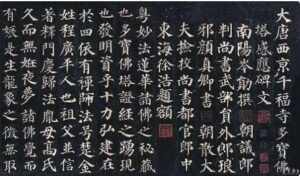 大唐西京千福寺多寶佛
塔感應碑文
南陽岑勛撰 朝議郎
判尚書武部員外郎琅
邪顏真卿書 朝散大
夫撿挍尚書都官郎中
東海徐浩題額
粵妙法蓮華諸佛之秘藏
也多寶佛塔證經之踴現
也發明資乎十力弘建在
於四依有禪師法號楚金
姓程廣平人也祖父並信
著釋門慶歸法胤母高氏
久而無妊夜夢諸佛覺而
有娠是生龍象之徵無取